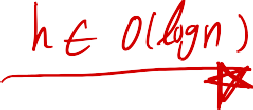 h ∈ O(log n)